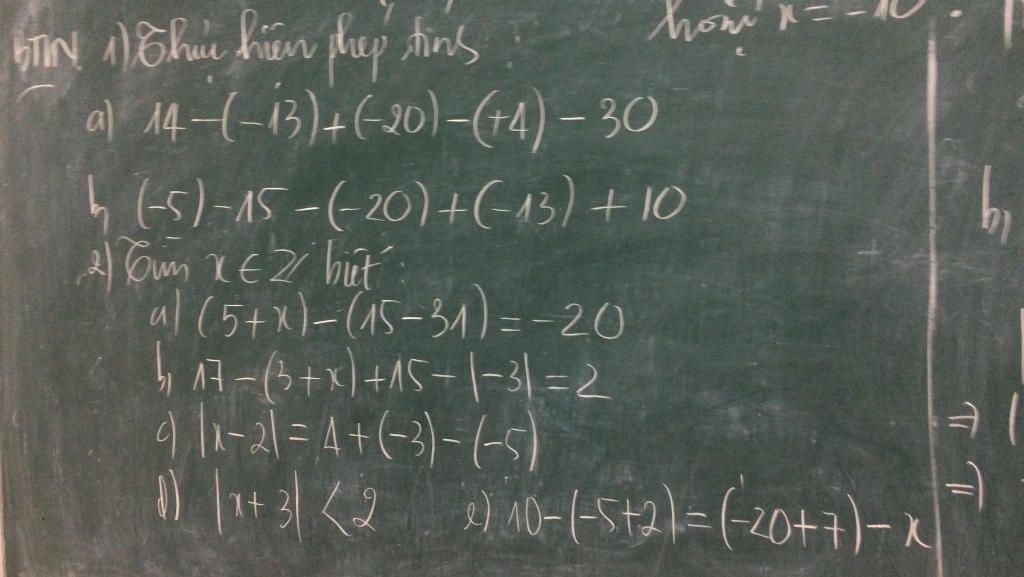 hoặc x = -10.
BTVN. 1) Thực hiện phép tính:
a) 14 - (-13) + (-20) - (+4) - 30
b, (-5) - 15 - (-20) + (-13) + 10
2) Tìm x ∈ Z biết:
a) (5+x) - (15-31) = -20
b, 17 - (3+x) + 15 - |-3| = 2
c) |x-2| = 4 + (-3) - (-5)
d) |x+3| < 2 e) 10 - (-5+2) = (-20+7) - x
b,
=> (
=>